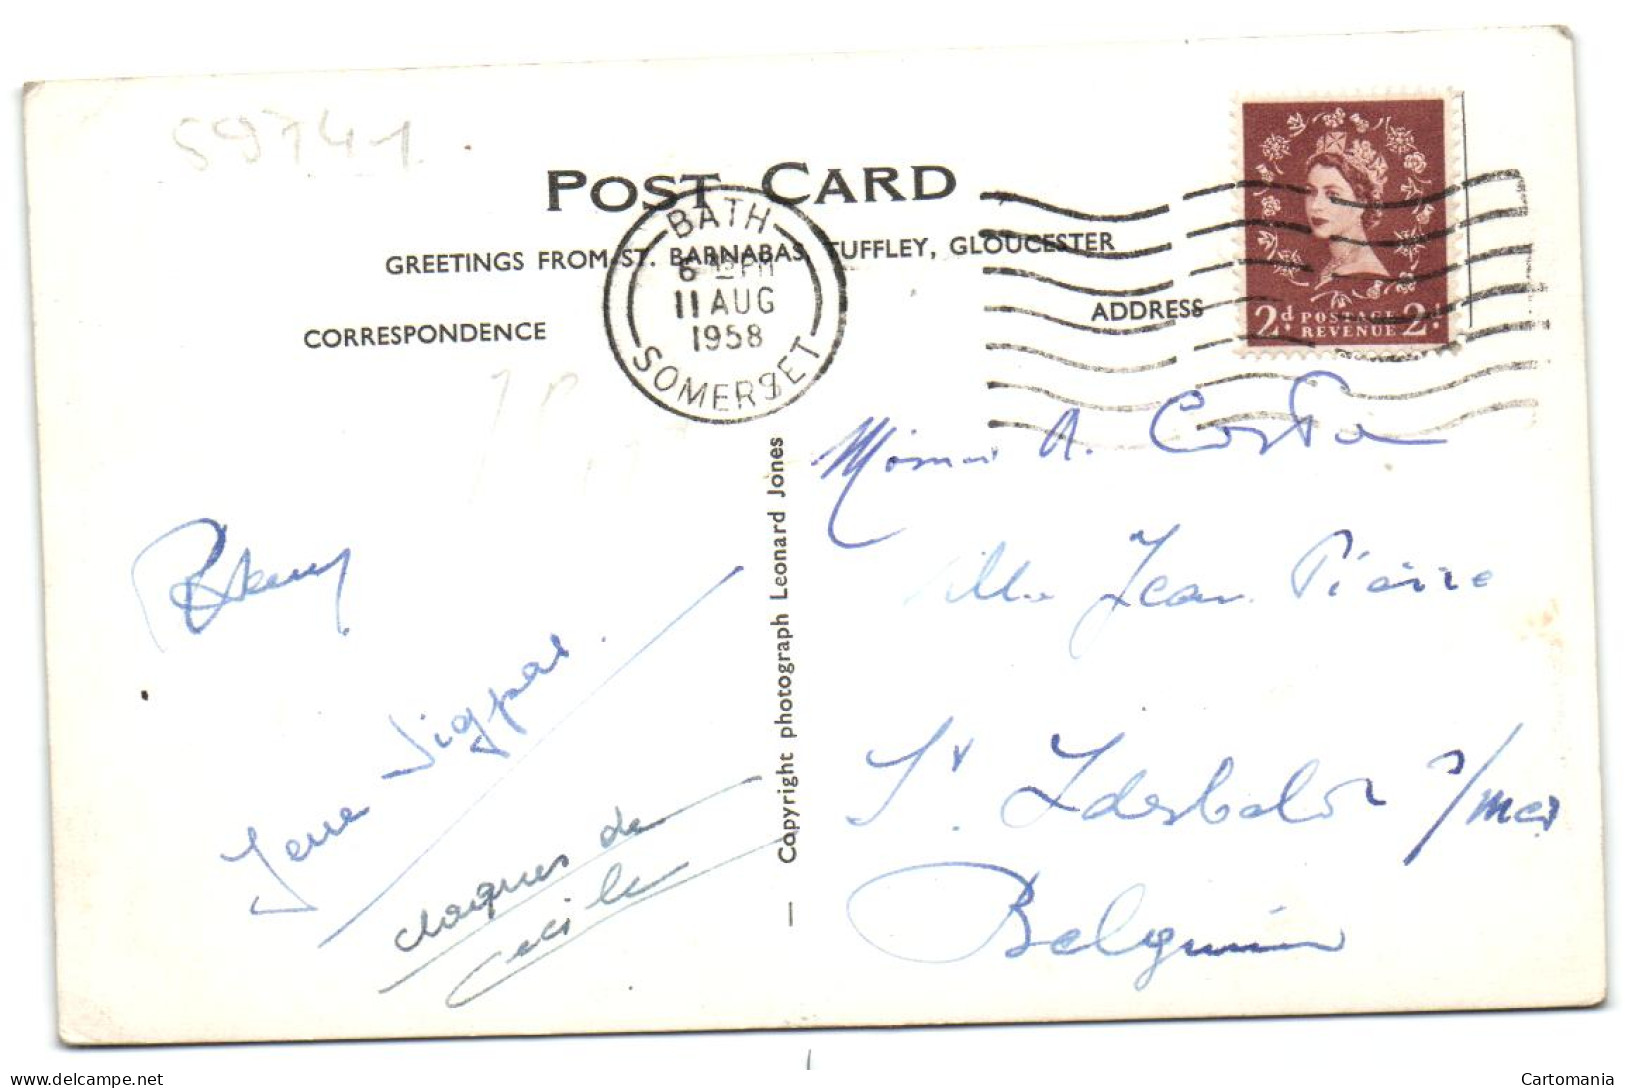 59741
POST CARD
GREETINGS FROM ST. BARNABAS, TUFFLEY, GLOUCESTER
BATH
6 45 PM
11 AUG
1958
SOMERSET
2d POSTAGE REVENUE 2d
CORRESPONDENCE
ADDRESS
A. Costa
Villa Jean Pierre
St. Idesbald s/mer
Belgium
Copyright photograph Leonard Jones
Jacques de
Cecile
delcampe.net
Cartomania